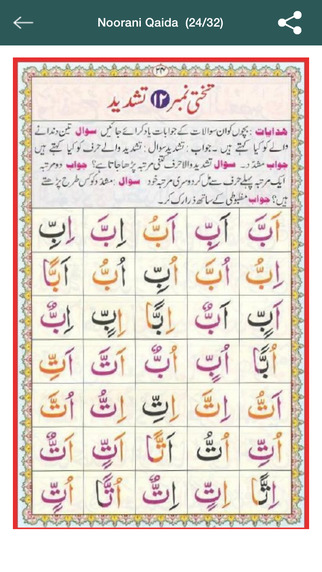 Noorani Qaida (24/32)
۲۴
تختی نمبر ۱۲ تشدید
ھدایات: بچوں کو ان سوالات کے جوابات یاد کرائے جائیں سوال تین دندانے
والے کو کیا کہتے ہیں۔ جواب: تشدید سوال: تشدید والے حرف کو کیا کہتے ہیں
جواب مشدّد۔ سوال تشدید والا حرف کتنی مرتبہ پڑھا جاتا ہے؟ جواب دو مرتبہ
ایک مرتبہ پہلے حرف سے مل کر دوسری مرتبہ خود سوال: مشدّد کو کس طرح پڑھتے
ہیں؟ جواب مضبوطی کے ساتھ ذرا رک کر۔
اَبَّ اَبِّ اَبُّ اِبَّ اِبِّ
اِبُّ اُبَّ اُبِّ اُبُّ اَبًّا
اَبٍّ اَبٌّ اِبًّا اِبٍّ اِبٌّ
اُبًّا اُبٍّ اُبٌّ اَتَّ اَتِّ
اَتُّ اِتَّ اِتِّ اِتُّ اُتَّ
اُتِّ اُتُّ اَتًّا اَتٍّ اَتٌّ
اِتًّا اِتٍّ اِتٌّ اُتًّا اُتٍّ